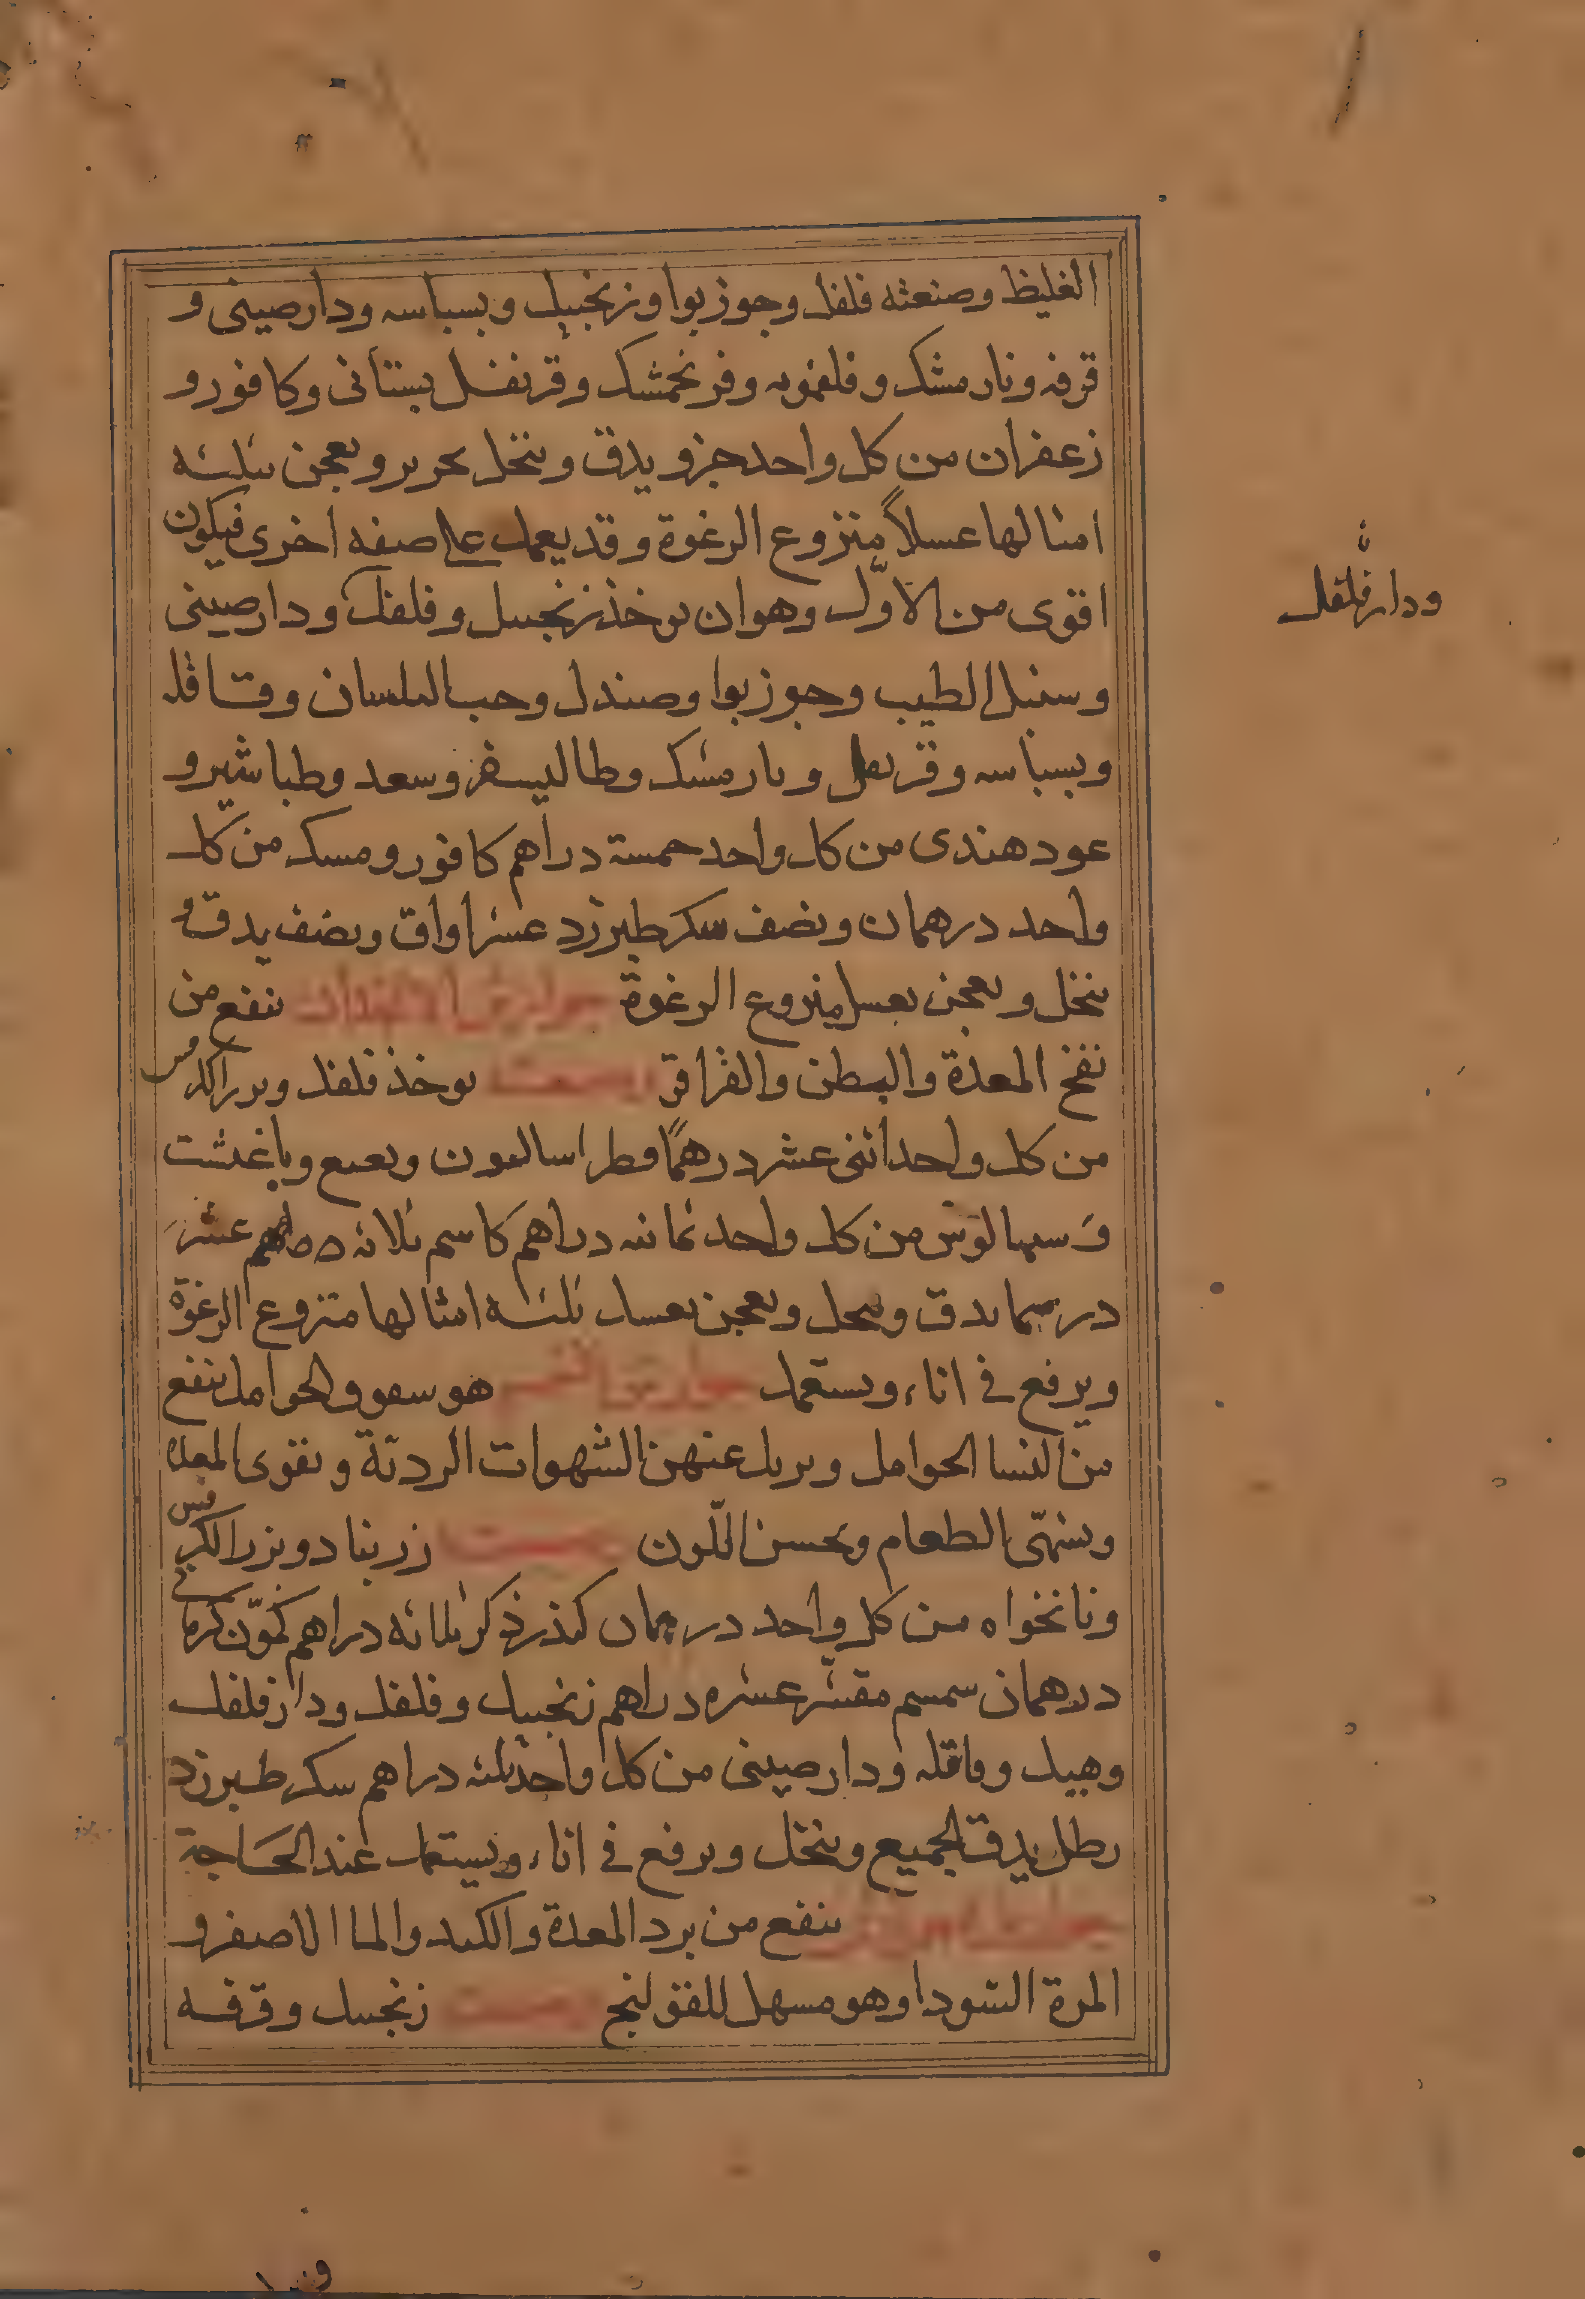 الغليظ وصنعته فلفل وجوزبوا وزنجبيل وبسباسه ودارصينى و
قرفه ونارمشك وفلفمويه وفرنجمشك وقرنفل بستانى وكافور و
زعفران من كل واحد جزو يدق وينخل بحرير ويعجن بثلثه
امثالها عسلاً منزوع الرغوة وقد يعمل على صفه اخرى فيكون
اقوى من الاوّل وهو ان يوخذ زنجبيل وفلفل ودارصينى
ودارفلفل
وسنبل الطيب وجوزبوا وصندل وحب البلسان وقاقله
وبسباسه وقرنفل ونارمشك وطاليسفر وسعد وطباشير و
عود هندى من كل واحد خمسة دراهم كافور ومسك من كل
واحد درهمان ونصف سكر طبرزد عشر اواق ونصف يدق و
ينخل ويعجن بعسل منزوع الرغوة جوارش ينفع من
نفخ المعدة والبطن والقراقر وصنعت يوخذ فلفل وبزر الكرفس
من كل واحد اثنى عشر درهمًا فطراساليون
من كل واحد ثمانيه دراهم كاسم ثلاثه عشر
درهما يدق وينخل ويعجن بعسل ثلثه امثالها منزوع الرغوة
ويرفع فى اناء ويستعمل جوارش هو سفوف الحوامل ينفع
من النسا الحوامل ويزيل عنهن الشهوات الرديّة ويقوى المعدة
ويشهّى الطعام ويحسن اللّون وصنعت زرنباد وبزر الكرفس
ونانخواه من كل واحد درهمان كندر ذكر ثلاثه دراهم كمّون كرمانى
درهمان سمسم مقشّر عشره دراهم زنجبيل وفلفل ودارفلفل
وهيل وقاقله ودارصينى من كل واحد ثلثه دراهم سكر طبرزد
رطل يدق الجميع وينخل ويرفع فى اناء ويستعمل عند الحاجة
جوارش ينفع من برد المعدة والكبد والما الاصفر و
المرة السّودا وهو مسهل للقولنج وصنعت زنجبيل وقرفه